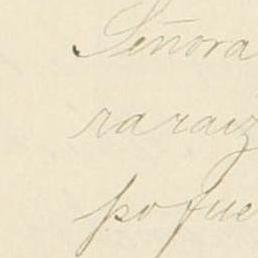 Señora
raraiz
po fue